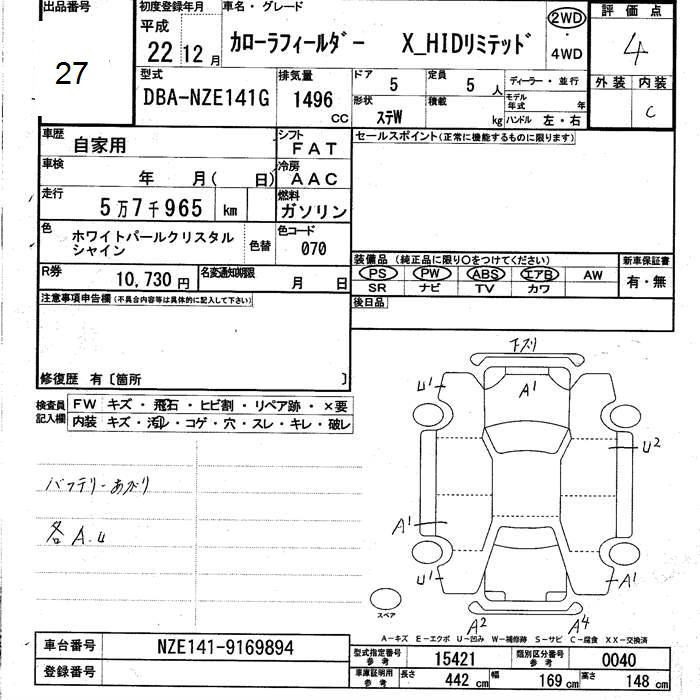 出品番号
27
初度登録年月
平成
22 12 月
車名・グレード
カローラフィールダー X_HIDリミテッド
2WD
・
4WD
評価点
4
外装 内装
C
型式
DBA-NZE141G
排気量
1496
CC
ドア
5
定員
5 人
形状
ステW
積載
kg
ディーラー・並行
モデル年式 年
ハンドル 左・右
車歴
自家用
シフト
FAT
車検
年 月( 日)
冷房
AAC
走行
5万7千965 km
燃料
ガソリン
色
ホワイトパールクリスタル
シャイン
色替
色コード
070
R券
10,730 円
名変通知期限
月 日
セールスポイント(正常に機能するものに限ります)
装備品 (純正品に限り○をつけてください)
新車保証書
PS PW ABS エアB AW
SR ナビ TV カワ
有・無
後日品
注意事項申告欄(不具合内容等は具体的に記入して下さい)
修復歴 有〔箇所 〕
検査員
記入欄
FW キズ・飛石・ヒビ割・リペア跡・×要
内装 キズ・汚レ・コゲ・穴・スレ・キレ・破レ
バッテリーあがり
各A.U
下スリ
U1
A1
U2
A1
U1
A1
A2
A4
スペア
A−キズ E−エクボ U−凹み W−補修跡 S−サビ C−腐食 XX−交換済
車台番号
NZE141-9169894
登録番号
型式指定番号
参考
15421
類別区分番号
参考
0040
車庫証明用
参考
長さ
442 cm
幅
169 cm
高さ
148 cm